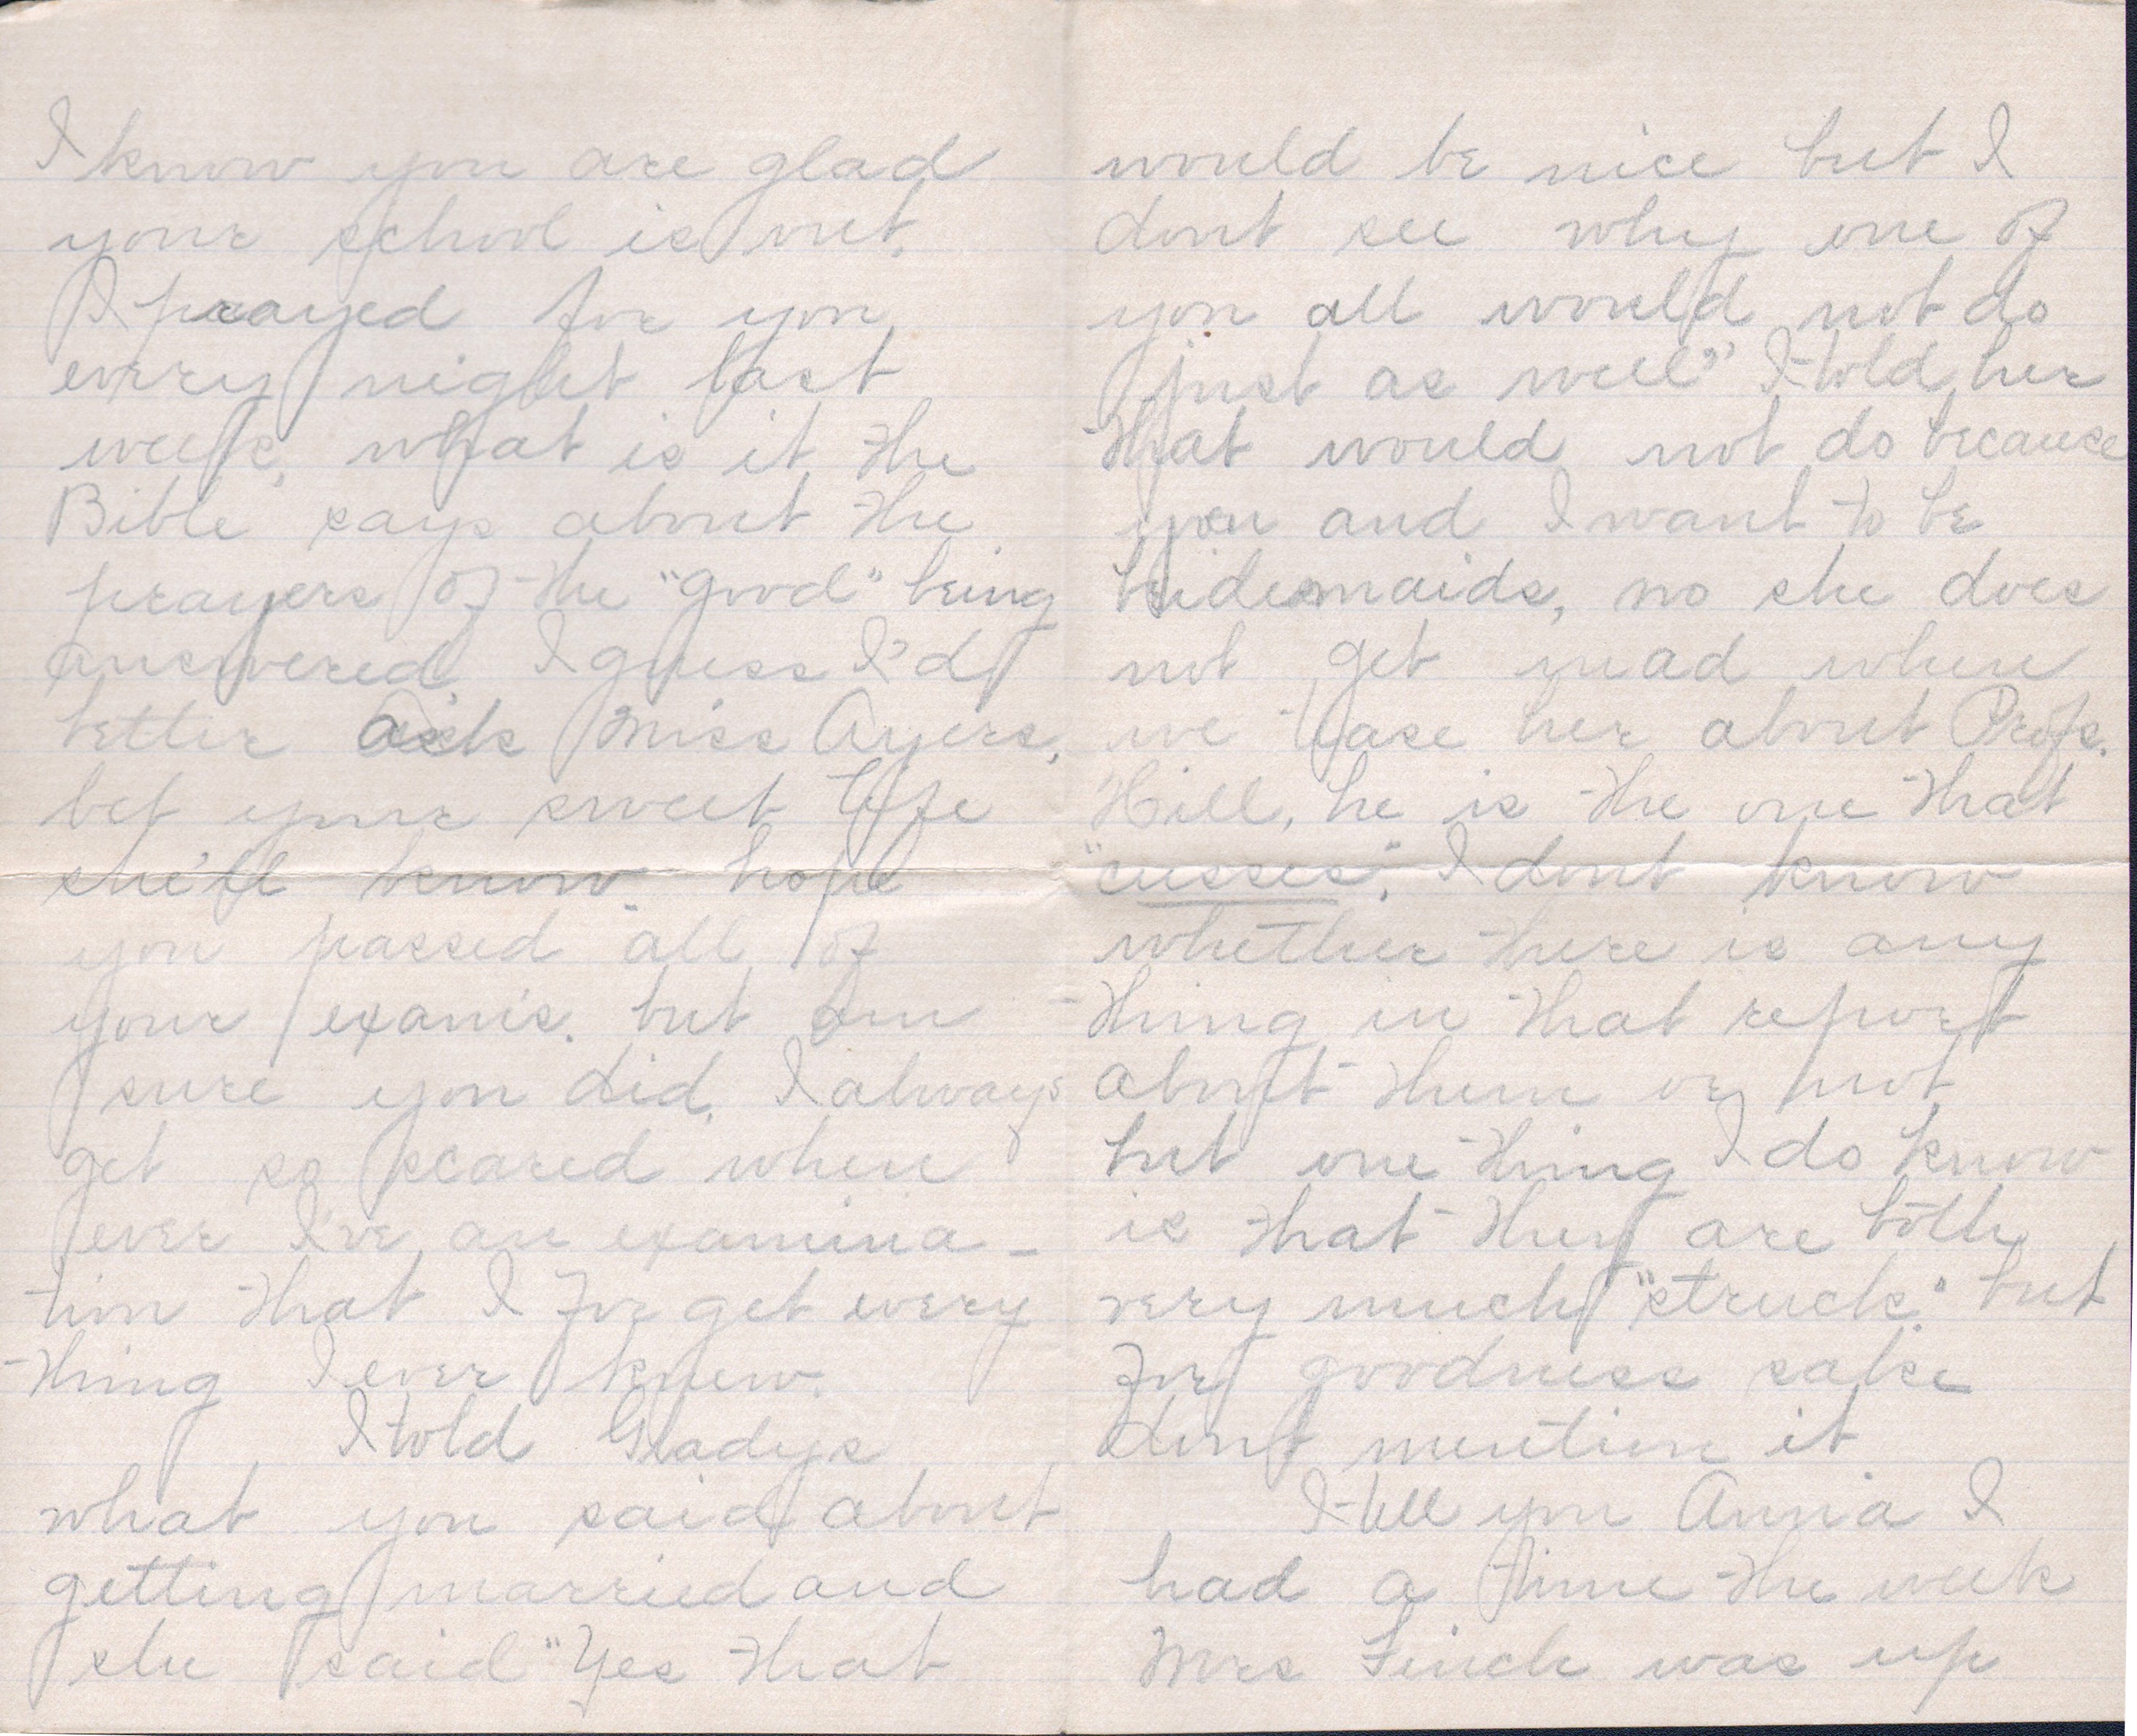 I know you are glad
your school is out.
I prayed for you
every night last
week, what is it the
Bible says about the
prayers of the "good" being
answered I guess I'd
better ask Miss Ayers,
bet your sweet life
she'll know. hope
you passed all of
your exam's. but am
sure you did, I always
get so scared when
ever I've an examina-
tion that I forget every
thing I ever knew.
I told Gladys
what you said about
getting married and
she said "Yes that
would be nice but I
dont see why one of
you all would not do
just as well" I told her
that would not do because
you and I want to be
bridesmaids, no she does
not get mad when
we tease her about Profs.
Hill, he is the one that
"cusses", I dont know
whether there is any
thing in that report
about them or not
but one thing I do know
is that they are both
very much "struck." but
for goodness sake
dont mention it
I tell you Anna I
had a time the week
Mrs Finch was up